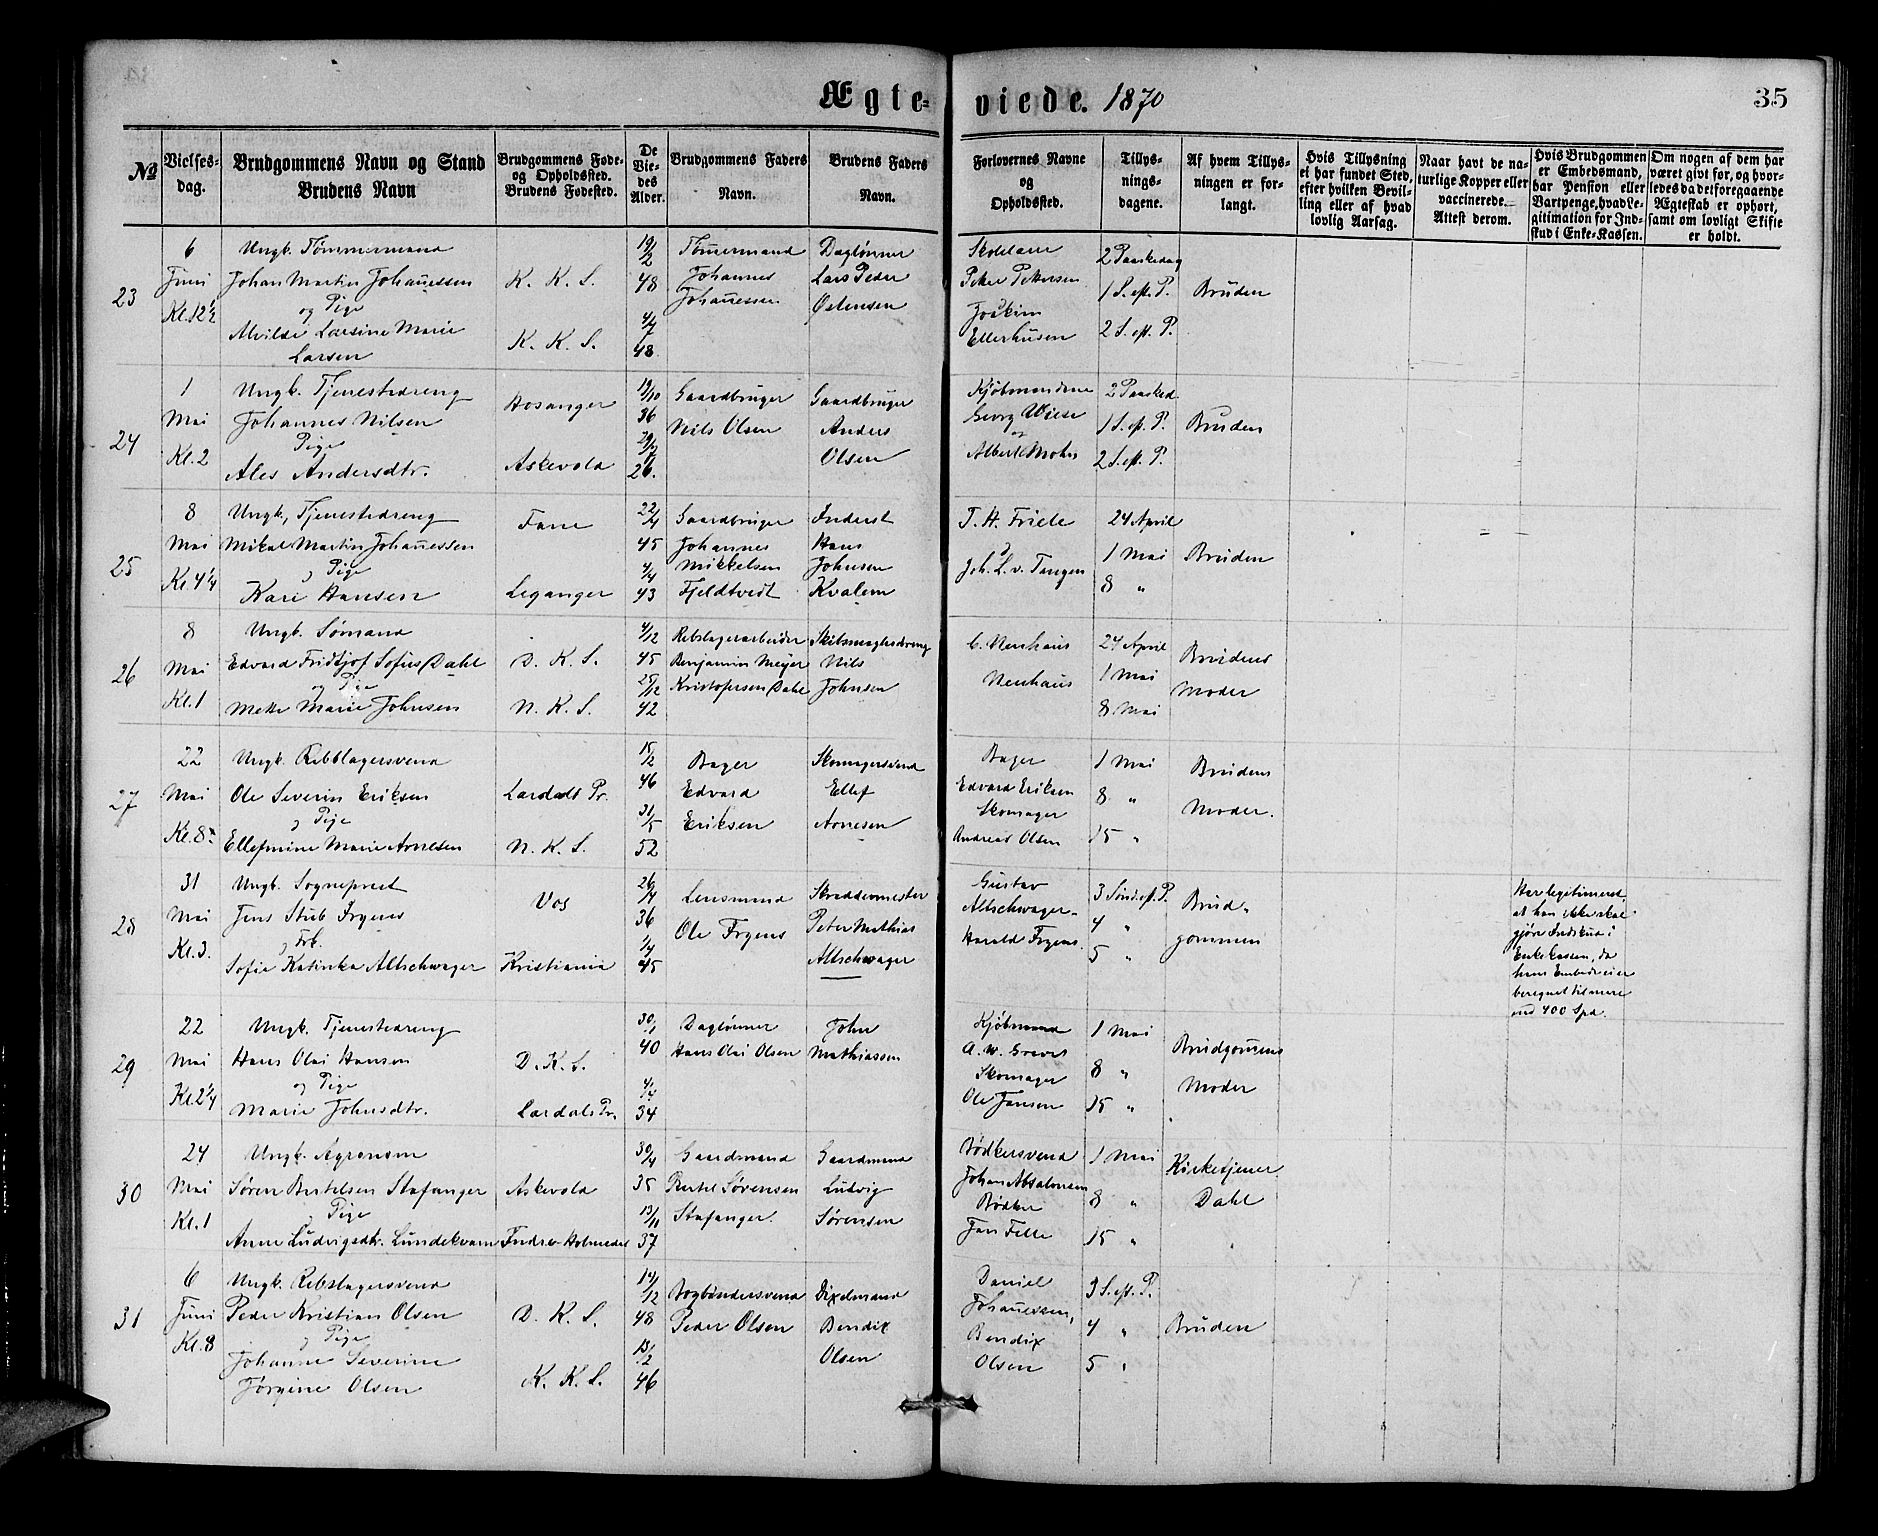 Ægte-
viede. 1870
35
No
Vielses-
dag.
Brudgommens Navn og Stand
Brudens Navn
Brudgommens Føde-
og Opholdssted.
Brudens Fødested.
De
Vie-
des
Alder.
Brudgommens Faders
Navn.
Brudens Faders
Navn.
Forlovernes Navne
og
Opholdssted.
Tillys-
nings-
dagene.
Af hvem Tillys-
ningen er for-
langt.
Hvis Tillysning
ei har fundet Sted,
efter hvilken Bevil-
ling eller af hvad
lovlig Aarsag.
Naar havt de na-
turlige Kopper eller
vaccinerede.
Attest derom.
Hvis Brudgommen
er Embedsmand,
har Pension eller
Vartpenge, hvad Le-
gitimation for Ind-
skud i Enke-Kassen.
Om nogen af dem har
været givt før, og hvor-
ledes da det foregaaende
Ægteskab er ophørt,
samt om lovligt Skifte
er holdt.
23
6
Juni
Kl. 12½
Ungk. Tømmermand
Johan Martin Johannessen
og Pige
Alvilde Larsine Marie
Larsen
K. K. S.
K. K. S.
19/2
48
4/7
48.
Tømmermand
Johannes
Johannessen
Daglønner
Lars Peder
Østensen
Peter Pettersen
Joakim
Ellerhusen
2 Paaskedag
1 S. eft. P.
2 S. eft. P.
Bruden
24
1
Mai
Kl. 2
Ungk. Tjenestedreng
Johannes Nilsen
Pige
Ales Andersdtr.
Hosanger
Askevold
19/10
36
26.
Gaardbruger
Nils Olsen
Gaardbruger
Anders
Olsen
Kjøbmændene
Georg Wiese
og
Albert Mohn
2 Paasked.
1 S. eft. P.
2 S. eft. P.
Bruden
25
8
Mai
Kl. 4¼
Ungk., Tjenestedreng
Mikal Martin Johannessen
og Pige
Kari Hansen
Fane
Leganger
22/4
45
4/4
43
Gaardbruger
Johannes
Mikkelsen
Fjeldtvedt
Inderst
Hans
Johnsen
Kvalem
T. H. Friele
Joh. L. v. Tangen
24 April
1 Mai
8 "
Bruden
26
8
Mai
Kl. 1
Ungk. Sømand
Edvard Fridtjof Sofus Dahl
og Pige
Mette Marie Johnsen
D. K. S.
N. K. S.
4/12
45
25/12
42
Rebslagerarbeider
Benjamin Meyer
Kristofersen Dahl
Nils
Johnsen
C. Neuhaus
Neuhaus
24 April
1 Mai
8 Mai
Brudens
Moder
27
22
Mai
Kl. 8
Ungk. Rebslagersvend
Ole Severin Eriksen
og Pige
Ellefmine Marie Arnesen
Lardals Pr.
N. K. S.
15/2
46
31/5
52
Bager
Edvard
Eriksen
Skomagersvend
Ellef
Arnesen
Bager
Edvard Eriksen
Skomager
Andreas Olsen
1 Mai
8 "
15 "
Brudens
Moder.
28
31
Mai
Kl. 3.
Ungk. Sogneprest
Jens Stub Irgens
og Frk.
Sofie Katinka Altschwager
Vos
Kristiania
26/4
36
1/4
45
Lensmand
Ole Irgens
Skreddermester
Peter Mathias
Altschwager
Gustav
Altschwager
Harald Irgens.
3 Sønd. eft. P.
4 "
5 "
Brud-
gommen
Har legitimeret,
at han ikke skal
gjøre Indskud i
Enkekassen, da
hans Embede ei er
beregnet til mere
end 400 Spd.
29
22
Mai
Kl. 2¼
Ungk. Tjenestedreng
Hans Olai Hansen
og Pige
Marie Johnsdtr.
D. K. S.
Lardals Pr.
30/1
40
4/4
34
Daglønner
Hans Olai Olsen
John
Mathiassen
Kjøbmand
A. W. Greve
Skomager
Ole Jansen
1 Mai
8 "
15 "
Brudgommens
Moder
30
24
Mai
Kl. 1
Ungk. Agronom
Søren Bertelsen Stafanger
og Pige
Anne Ludvigsdtr. Lundekvam
Askevold
Indre Holmedal
30/4
35
13/11
37
Gaardmand
Bertel Sørensen
Stafanger.
Gaardmand
Ludvig
Sørensen
Bødkersvend
Johan Absalonsen
Bødker
Jan Felle
1 Mai
8 "
15 "
Kirketjener
Dahl
31
6
Juni
Kl. 8
Ungk. Rebslagersvend
Peder Kristian Olsen
og Pige
Johanne Severine
Jørgine Olsen
D. K. S.
K. K. S.
14/12
48
13/2
46
Bogbindersvend
Peder Olsen
Dixelmand
Bendix
Olsen
Daniel
Johannessen,
Bendix
Olsen
3 S. eft. P.
4 "
5 "
Bruden